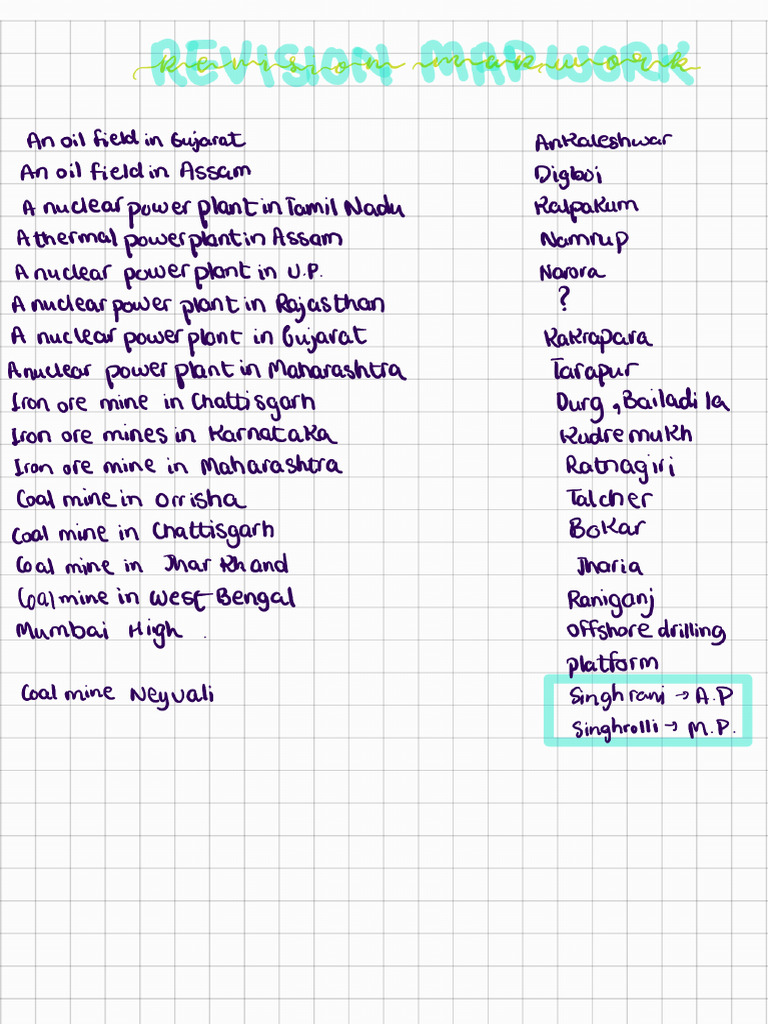 REVISION MAPWORK
revision mapwork
An oil field in Gujarat Ankaleshwar
An oil field in Assam Digboi
A nuclear power plant in Tamil Nadu Kalpakum
A thermal power plant in Assam Namrup
A nuclear power plant in U.P. Narora
A nuclear power plant in Rajasthan ?
A nuclear power plant in Gujarat Kakrapara
A nuclear power plant in Maharashtra Tarapur
Iron ore mine in Chattisgarh Durg, Bailadila
Iron ore mines in Karnataka Kudremukh
Iron ore mine in Maharashtra Ratnagiri
Coal mine in Orrisha Talcher
Coal mine in Chattisgarh Bokar
Coal mine in Jharkhand Jharia
Coal mine in West Bengal Raniganj
Mumbai High offshore drilling
platform
Coal mine Neyvali Singhrani → A.P
Singhrolli → M.P.